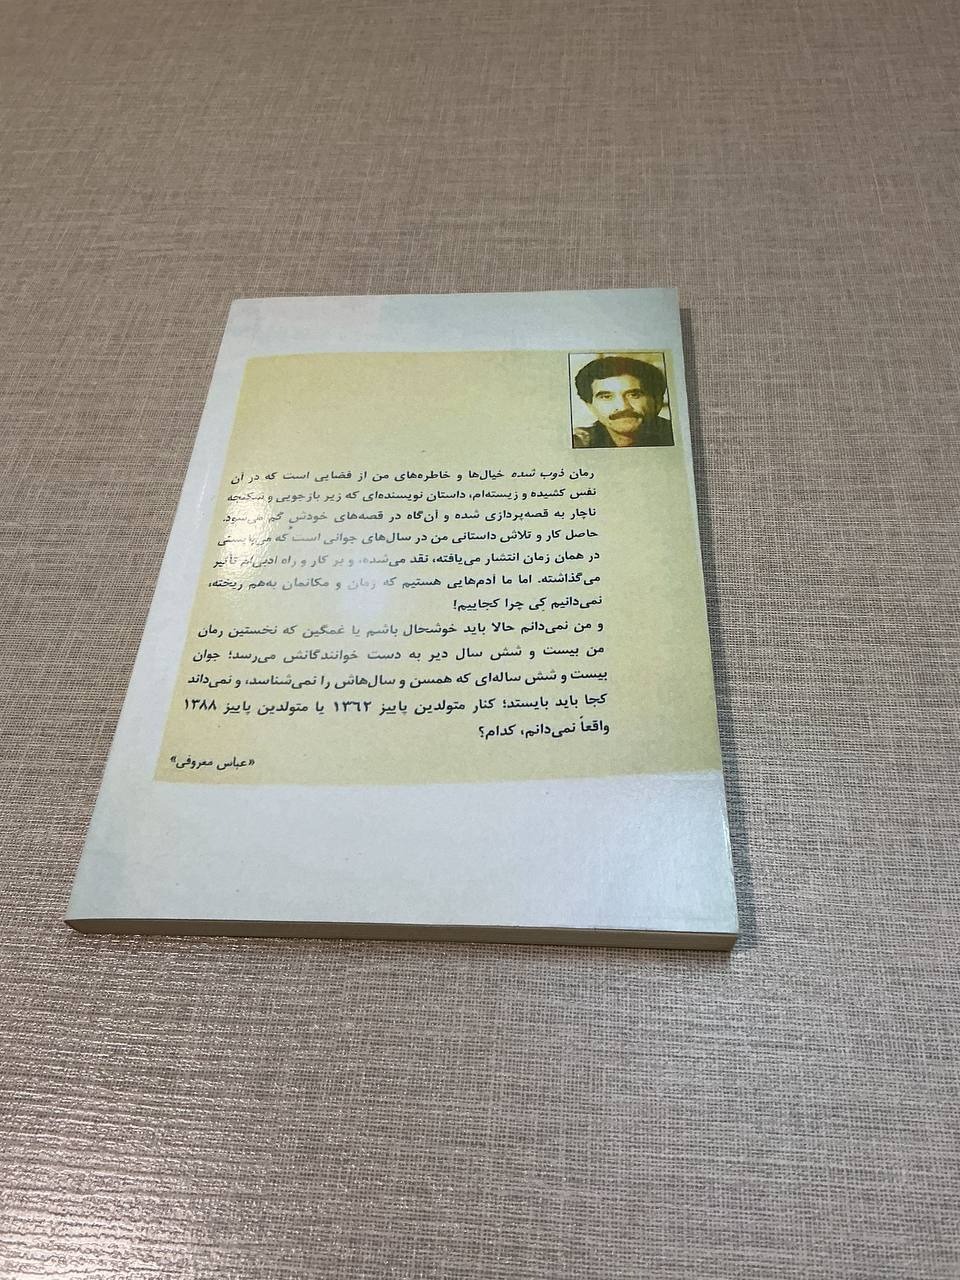 رمان ذوب شده خیال‌ها و خاطره‌های من از فضایی است که در آن
نفس کشیده و زیسته‌ام، داستان نویسنده‌ای که زیر بازجویی و شکنجه
ناچار به قصه‌پردازی شده و آن‌گاه در قصه‌های خودش گم می‌شود.
حاصل کار و تلاش داستانی من در سال‌های جوانی است که می‌بایستی
در همان زمان انتشار می‌یافته، نقد می‌شده، و بر کار و راه ادبی‌ام تأثیر
می‌گذاشته. اما ما آدم‌هایی هستیم که زمان و مکانمان به‌هم ریخته،
نمی‌دانیم کِی چرا کجاییم!
و من نمی‌دانم حالا باید خوشحال باشم یا غمگین که نخستین رمان
من بیست و شش سال دیر به دست خوانندگانش می‌رسد؛ جوان
بیست و شش ساله‌ای که همسن و سال‌هاش را نمی‌شناسد، و نمی‌داند
کجا باید بایستد؛ کنار متولدین پاییز ۱۳۶۲ یا متولدین پاییز ۱۳۸۸
واقعاً نمی‌دانم، کدام؟
«عباس معروفی»